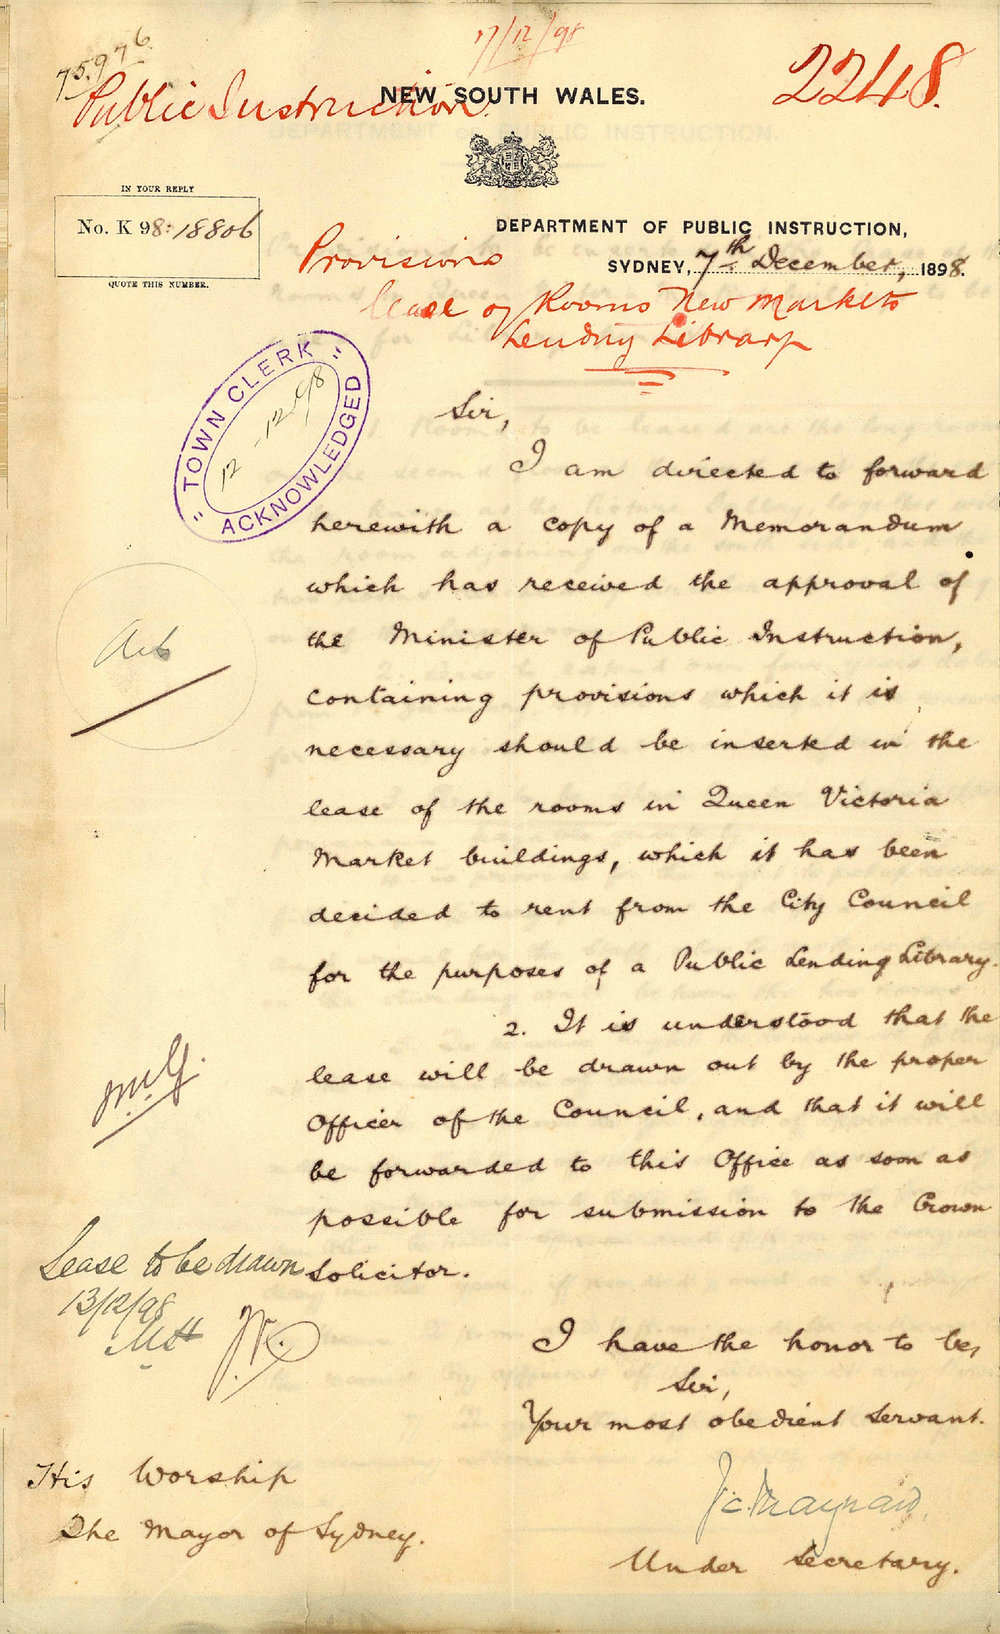 75976
17/12/98
Public Instruction.
NEW SOUTH WALES.
2248.
IN YOUR REPLY
No. K 98:18806
QUOTE THIS NUMBER.
DEPARTMENT OF PUBLIC INSTRUCTION,
SYDNEY, 7th December, 1898.
Provisions
lease of Rooms New Markets
Lending Library
"TOWN CLERK"
12-12-98
ACKNOWLEDGED
Sir,
I am directed to forward
herewith a copy of a Memorandum
which has received the approval of
the Minister of Public Instruction,
containing provisions which it is
necessary should be inserted in the
lease of the rooms in Queen Victoria
Market buildings, which it has been
decided to rent from the City Council
for the purposes of a Public Lending Library.
2. It is understood that the
lease will be drawn out by the proper
Officer of the Council, and that it will
be forwarded to this Office as soon as
possible for submission to the Crown
Solicitor.
Lease to be drawn
13/12/98
I have the honor to be,
Sir,
Your most obedient Servant.
J.C. Maynard.
Under Secretary.
His Worship
The Mayor of Sydney.